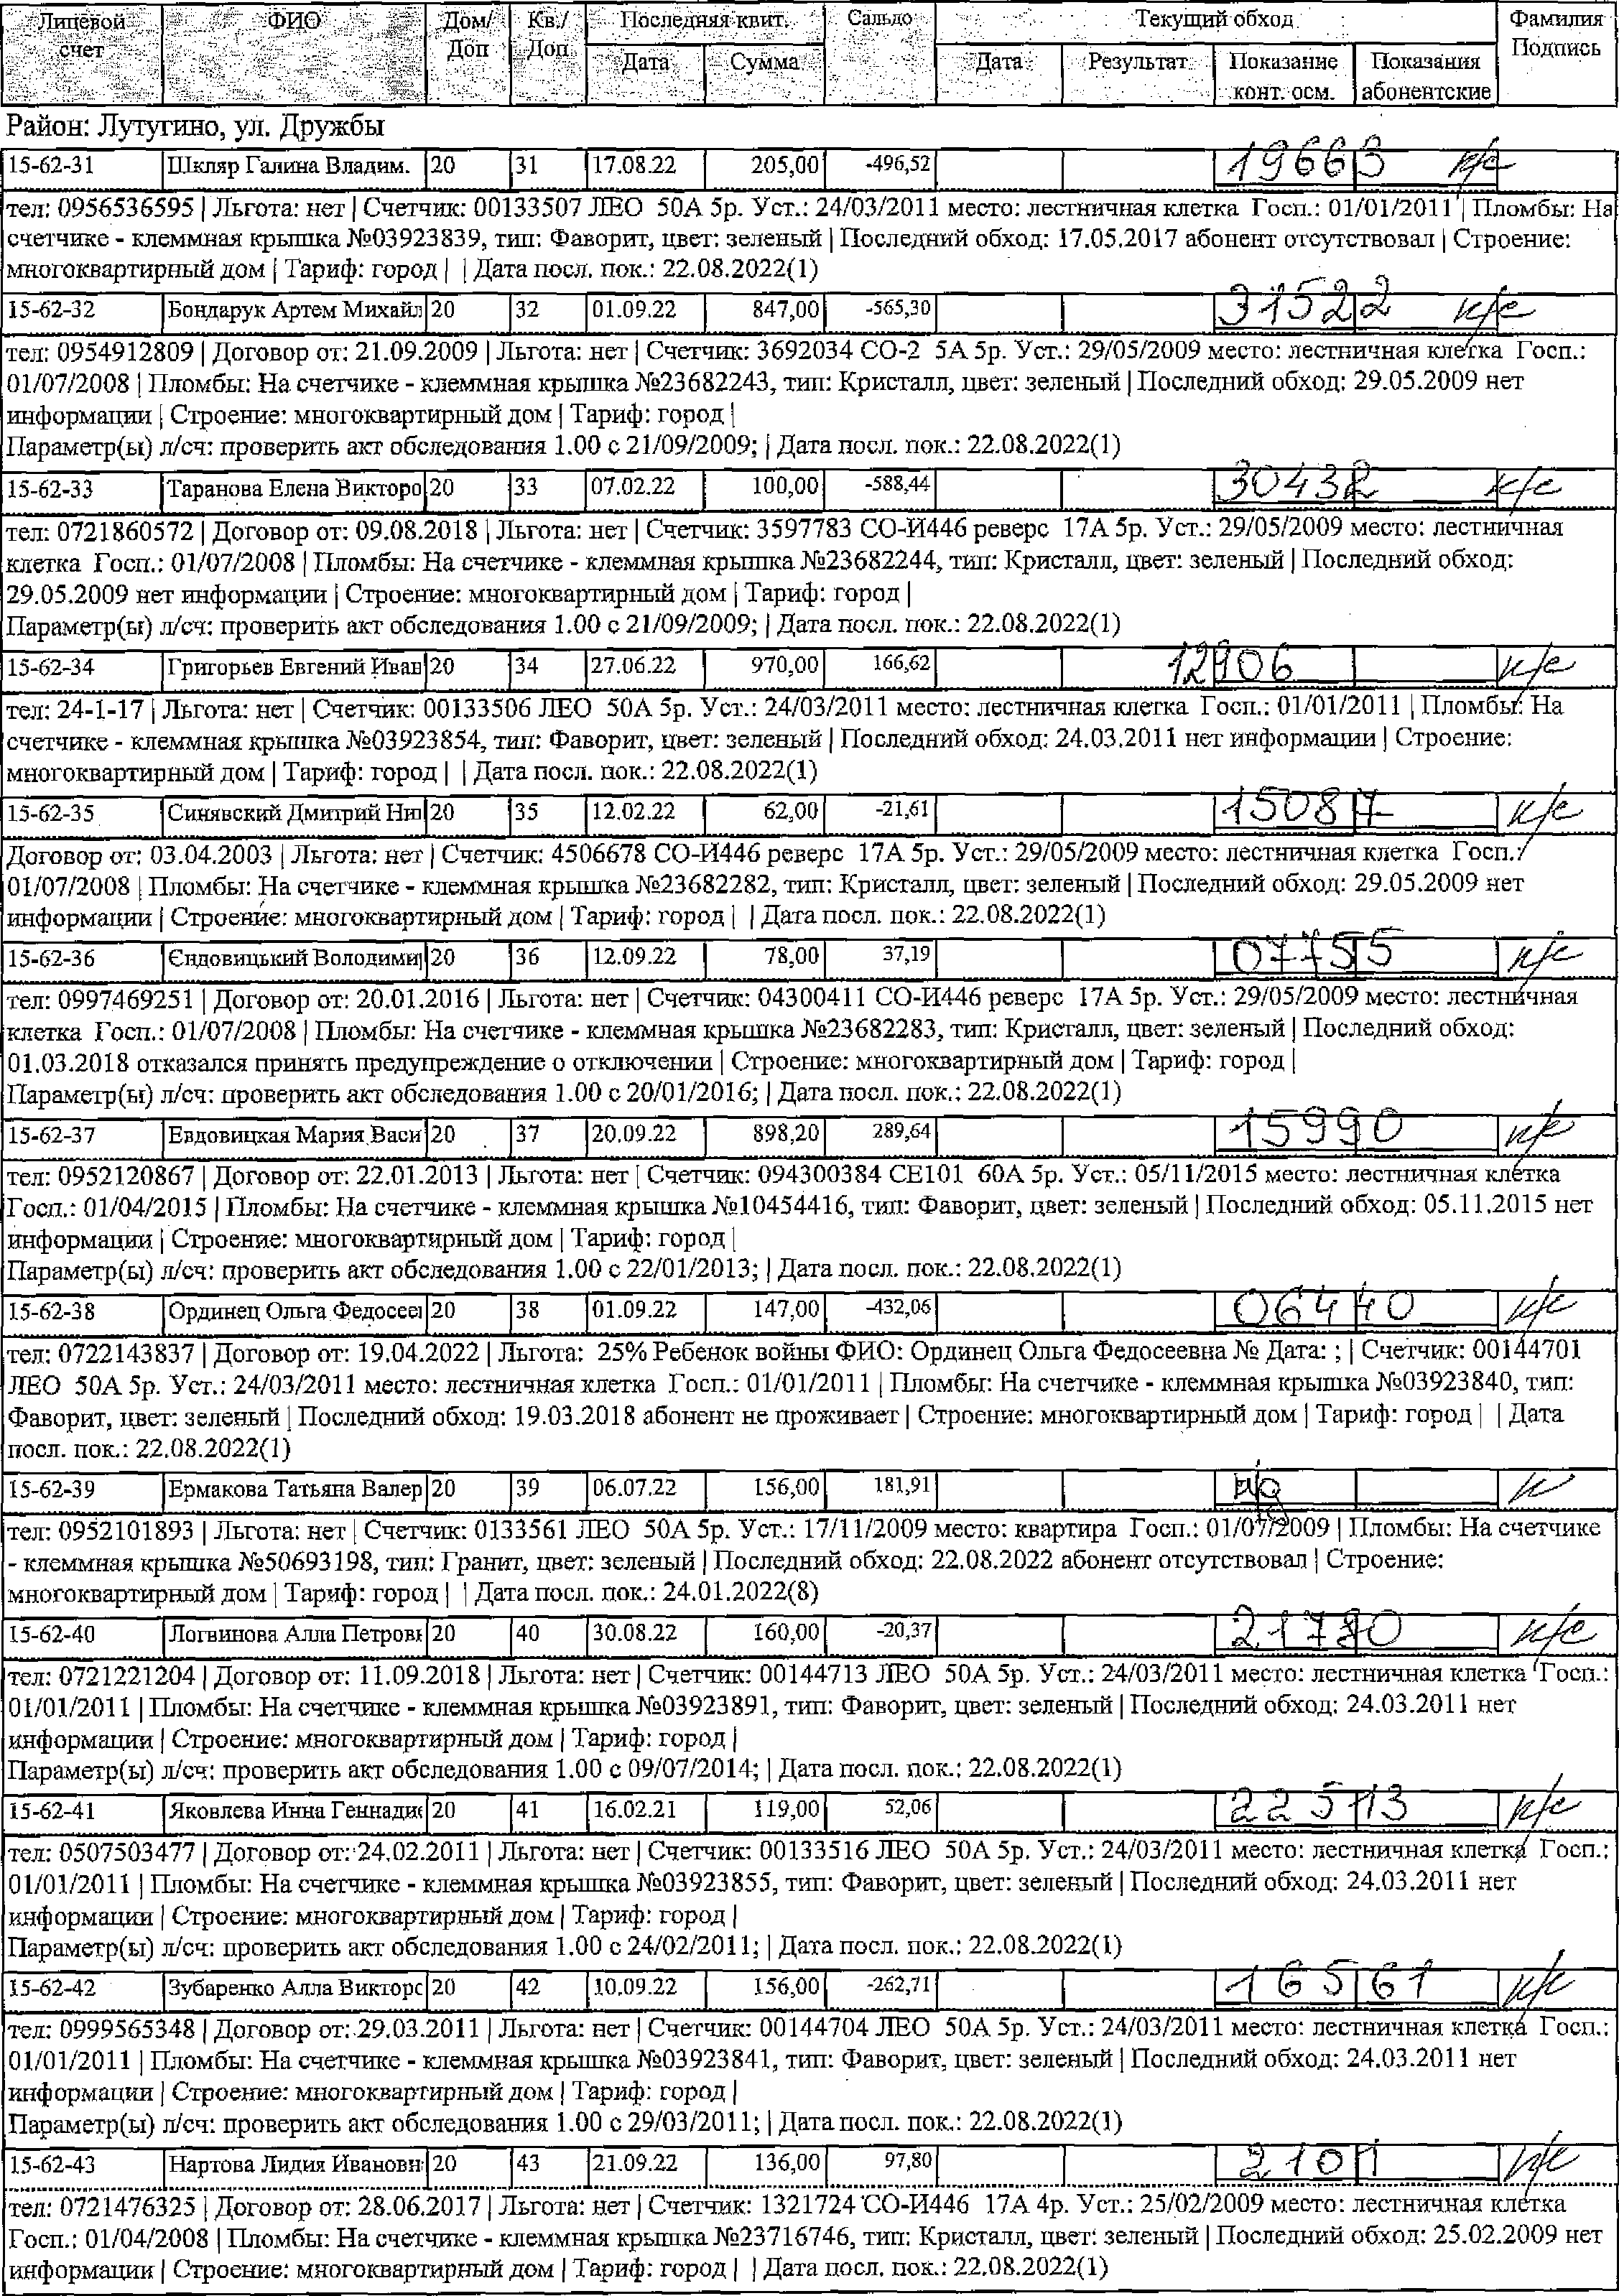 Лицевой счет | ФИО | Дом/ Доп | Кв./ Доп | Последняя квит. | Сальдо | Текущий обход | Фамилия Подпись
Дата | Сумма | Дата | Результат | Показание конт. осм. | Показания абонентские
Район: Лутугино, ул. Дружбы
15-62-31 | Шкляр Галина Владим. | 20 | 31 | 17.08.22 | 205,00 | -496,52 | 19663 к/с
тел: 0956536595 | Льгота: нет | Счетчик: 00133507 ЛЕО 50А 5р. Уст.: 24/03/2011 место: лестничная клетка Госп.: 01/01/2011 | Пломбы: На
счетчике - клеммная крышка №03923839, тип: Фаворит, цвет: зеленый | Последний обход: 17.05.2017 абонент отсутствовал | Строение:
многоквартирный дом | Тариф: город | | Дата посл. пок.: 22.08.2022(1)
15-62-32 | Бондарук Артем Михайл | 20 | 32 | 01.09.22 | 847,00 | -565,30 | 31522 к/с
тел: 0954912809 | Договор от: 21.09.2009 | Льгота: нет | Счетчик: 3692034 СО-2 5А 5р. Уст.: 29/05/2009 место: лестничная клетка Госп.:
01/07/2008 | Пломбы: На счетчике - клеммная крышка №23682243, тип: Кристалл, цвет: зеленый | Последний обход: 29.05.2009 нет
информации | Строение: многоквартирный дом | Тариф: город |
Параметр(ы) л/сч: проверить акт обследования 1.00 с 21/09/2009; | Дата посл. пок.: 22.08.2022(1)
15-62-33 | Таранова Елена Викторо | 20 | 33 | 07.02.22 | 100,00 | -588,44 | 30432 к/с
тел: 0721860572 | Договор от: 09.08.2018 | Льгота: нет | Счетчик: 3597783 СО-И446 реверс 17А 5р. Уст.: 29/05/2009 место: лестничная
клетка Госп.: 01/07/2008 | Пломбы: На счетчике - клеммная крышка №23682244, тип: Кристалл, цвет: зеленый | Последний обход:
29.05.2009 нет информации | Строение: многоквартирный дом | Тариф: город |
Параметр(ы) л/сч: проверить акт обследования 1.00 с 21/09/2009; | Дата посл. пок.: 22.08.2022(1)
15-62-34 | Григорьев Евгений Иван | 20 | 34 | 27.06.22 | 970,00 | 166,62 | 12906 к/с
тел: 24-1-17 | Льгота: нет | Счетчик: 00133506 ЛЕО 50А 5р. Уст.: 24/03/2011 место: лестничная клетка Госп.: 01/01/2011 | Пломбы: На
счетчике - клеммная крышка №03923854, тип: Фаворит, цвет: зеленый | Последний обход: 24.03.2011 нет информации | Строение:
многоквартирный дом | Тариф: город | | Дата посл. пок.: 22.08.2022(1)
15-62-35 | Синявский Дмитрий Ник | 20 | 35 | 12.02.22 | 62,00 | -21,61 | 15087 к/с
Договор от: 03.04.2003 | Льгота: нет | Счетчик: 4506678 СО-И446 реверс 17А 5р. Уст.: 29/05/2009 место: лестничная клетка Госп.:
01/07/2008 | Пломбы: На счетчике - клеммная крышка №23682282, тип: Кристалл, цвет: зеленый | Последний обход: 29.05.2009 нет
информации | Строение: многоквартирный дом | Тариф: город | | Дата посл. пок.: 22.08.2022(1)
15-62-36 | Єндовицький Володими | 20 | 36 | 12.09.22 | 78,00 | 37,19 | 07755 к/с
тел: 0997469251 | Договор от: 20.01.2016 | Льгота: нет | Счетчик: 04300411 СО-И446 реверс 17А 5р. Уст.: 29/05/2009 место: лестничная
клетка Госп.: 01/07/2008 | Пломбы: На счетчике - клеммная крышка №23682283, тип: Кристалл, цвет: зеленый | Последний обход:
01.03.2018 отказался принять предупреждение о отключении | Строение: многоквартирный дом | Тариф: город |
Параметр(ы) л/сч: проверить акт обследования 1.00 с 20/01/2016; | Дата посл. пок.: 22.08.2022(1)
15-62-37 | Евдовицкая Мария Васи | 20 | 37 | 20.09.22 | 898,20 | 289,64 | 15990 к/с
тел: 0952120867 | Договор от: 22.01.2013 | Льгота: нет | Счетчик: 094300384 СЕ101 60А 5р. Уст.: 05/11/2015 место: лестничная клетка
Госп.: 01/04/2015 | Пломбы: На счетчике - клеммная крышка №10454416, тип: Фаворит, цвет: зеленый | Последний обход: 05.11.2015 нет
информации | Строение: многоквартирный дом | Тариф: город |
Параметр(ы) л/сч: проверить акт обследования 1.00 с 22/01/2013; | Дата посл. пок.: 22.08.2022(1)
15-62-38 | Ординец Ольга Федосее | 20 | 38 | 01.09.22 | 147,00 | -432,06 | 06440 к/с
тел: 0722143837 | Договор от: 19.04.2022 | Льгота: 25% Ребенок войны ФИО: Ординец Ольга Федосеевна № Дата: ; | Счетчик: 00144701
ЛЕО 50А 5р. Уст.: 24/03/2011 место: лестничная клетка Госп.: 01/01/2011 | Пломбы: На счетчике - клеммная крышка №03923840, тип:
Фаворит, цвет: зеленый | Последний обход: 19.03.2018 абонент не проживает | Строение: многоквартирный дом | Тариф: город | | Дата
посл. пок.: 22.08.2022(1)
15-62-39 | Ермакова Татьяна Валер | 20 | 39 | 06.07.22 | 156,00 | 181,91
тел: 0952101893 | Льгота: нет | Счетчик: 0133561 ЛЕО 50А 5р. Уст.: 17/11/2009 место: квартира Госп.: 01/07/2009 | Пломбы: На счетчике
- клеммная крышка №50693198, тип: Гранит, цвет: зеленый | Последний обход: 22.08.2022 абонент отсутствовал | Строение:
многоквартирный дом | Тариф: город | | Дата посл. пок.: 24.01.2022(8)
15-62-40 | Логвинова Алла Петров | 20 | 40 | 30.08.22 | 160,00 | -20,37 | 21780 к/с
тел: 0721221204 | Договор от: 11.09.2018 | Льгота: нет | Счетчик: 00144713 ЛЕО 50А 5р. Уст.: 24/03/2011 место: лестничная клетка Госп.:
01/01/2011 | Пломбы: На счетчике - клеммная крышка №03923891, тип: Фаворит, цвет: зеленый | Последний обход: 24.03.2011 нет
информации | Строение: многоквартирный дом | Тариф: город |
Параметр(ы) л/сч: проверить акт обследования 1.00 с 09/07/2014; | Дата посл. пок.: 22.08.2022(1)
15-62-41 | Яковлева Инна Геннади | 20 | 41 | 16.02.21 | 119,00 | 52,06 | 22513 к/с
тел: 0507503477 | Договор от: 24.02.2011 | Льгота: нет | Счетчик: 00133516 ЛЕО 50А 5р. Уст.: 24/03/2011 место: лестничная клетка Госп.:
01/01/2011 | Пломбы: На счетчике - клеммная крышка №03923855, тип: Фаворит, цвет: зеленый | Последний обход: 24.03.2011 нет
информации | Строение: многоквартирный дом | Тариф: город |
Параметр(ы) л/сч: проверить акт обследования 1.00 с 24/02/2011; | Дата посл. пок.: 22.08.2022(1)
15-62-42 | Зубаренко Алла Викторо | 20 | 42 | 10.09.22 | 156,00 | -262,71 | 16561 к/с
тел: 0999565348 | Договор от: 29.03.2011 | Льгота: нет | Счетчик: 00144704 ЛЕО 50А 5р. Уст.: 24/03/2011 место: лестничная клетка Госп.:
01/01/2011 | Пломбы: На счетчике - клеммная крышка №03923841, тип: Фаворит, цвет: зеленый | Последний обход: 24.03.2011 нет
информации | Строение: многоквартирный дом | Тариф: город |
Параметр(ы) л/сч: проверить акт обследования 1.00 с 29/03/2011; | Дата посл. пок.: 22.08.2022(1)
15-62-43 | Нартова Лидия Ивановн | 20 | 43 | 21.09.22 | 136,00 | 97,80 | 2101 к/с
тел: 0721476325 | Договор от: 28.06.2017 | Льгота: нет | Счетчик: 1321724 СО-И446 17А 4р. Уст.: 25/02/2009 место: лестничная клетка
Госп.: 01/04/2008 | Пломбы: На счетчике - клеммная крышка №23716746, тип: Кристалл, цвет: зеленый | Последний обход: 25.02.2009 нет
информации | Строение: многоквартирный дом | Тариф: город | | Дата посл. пок.: 22.08.2022(1)